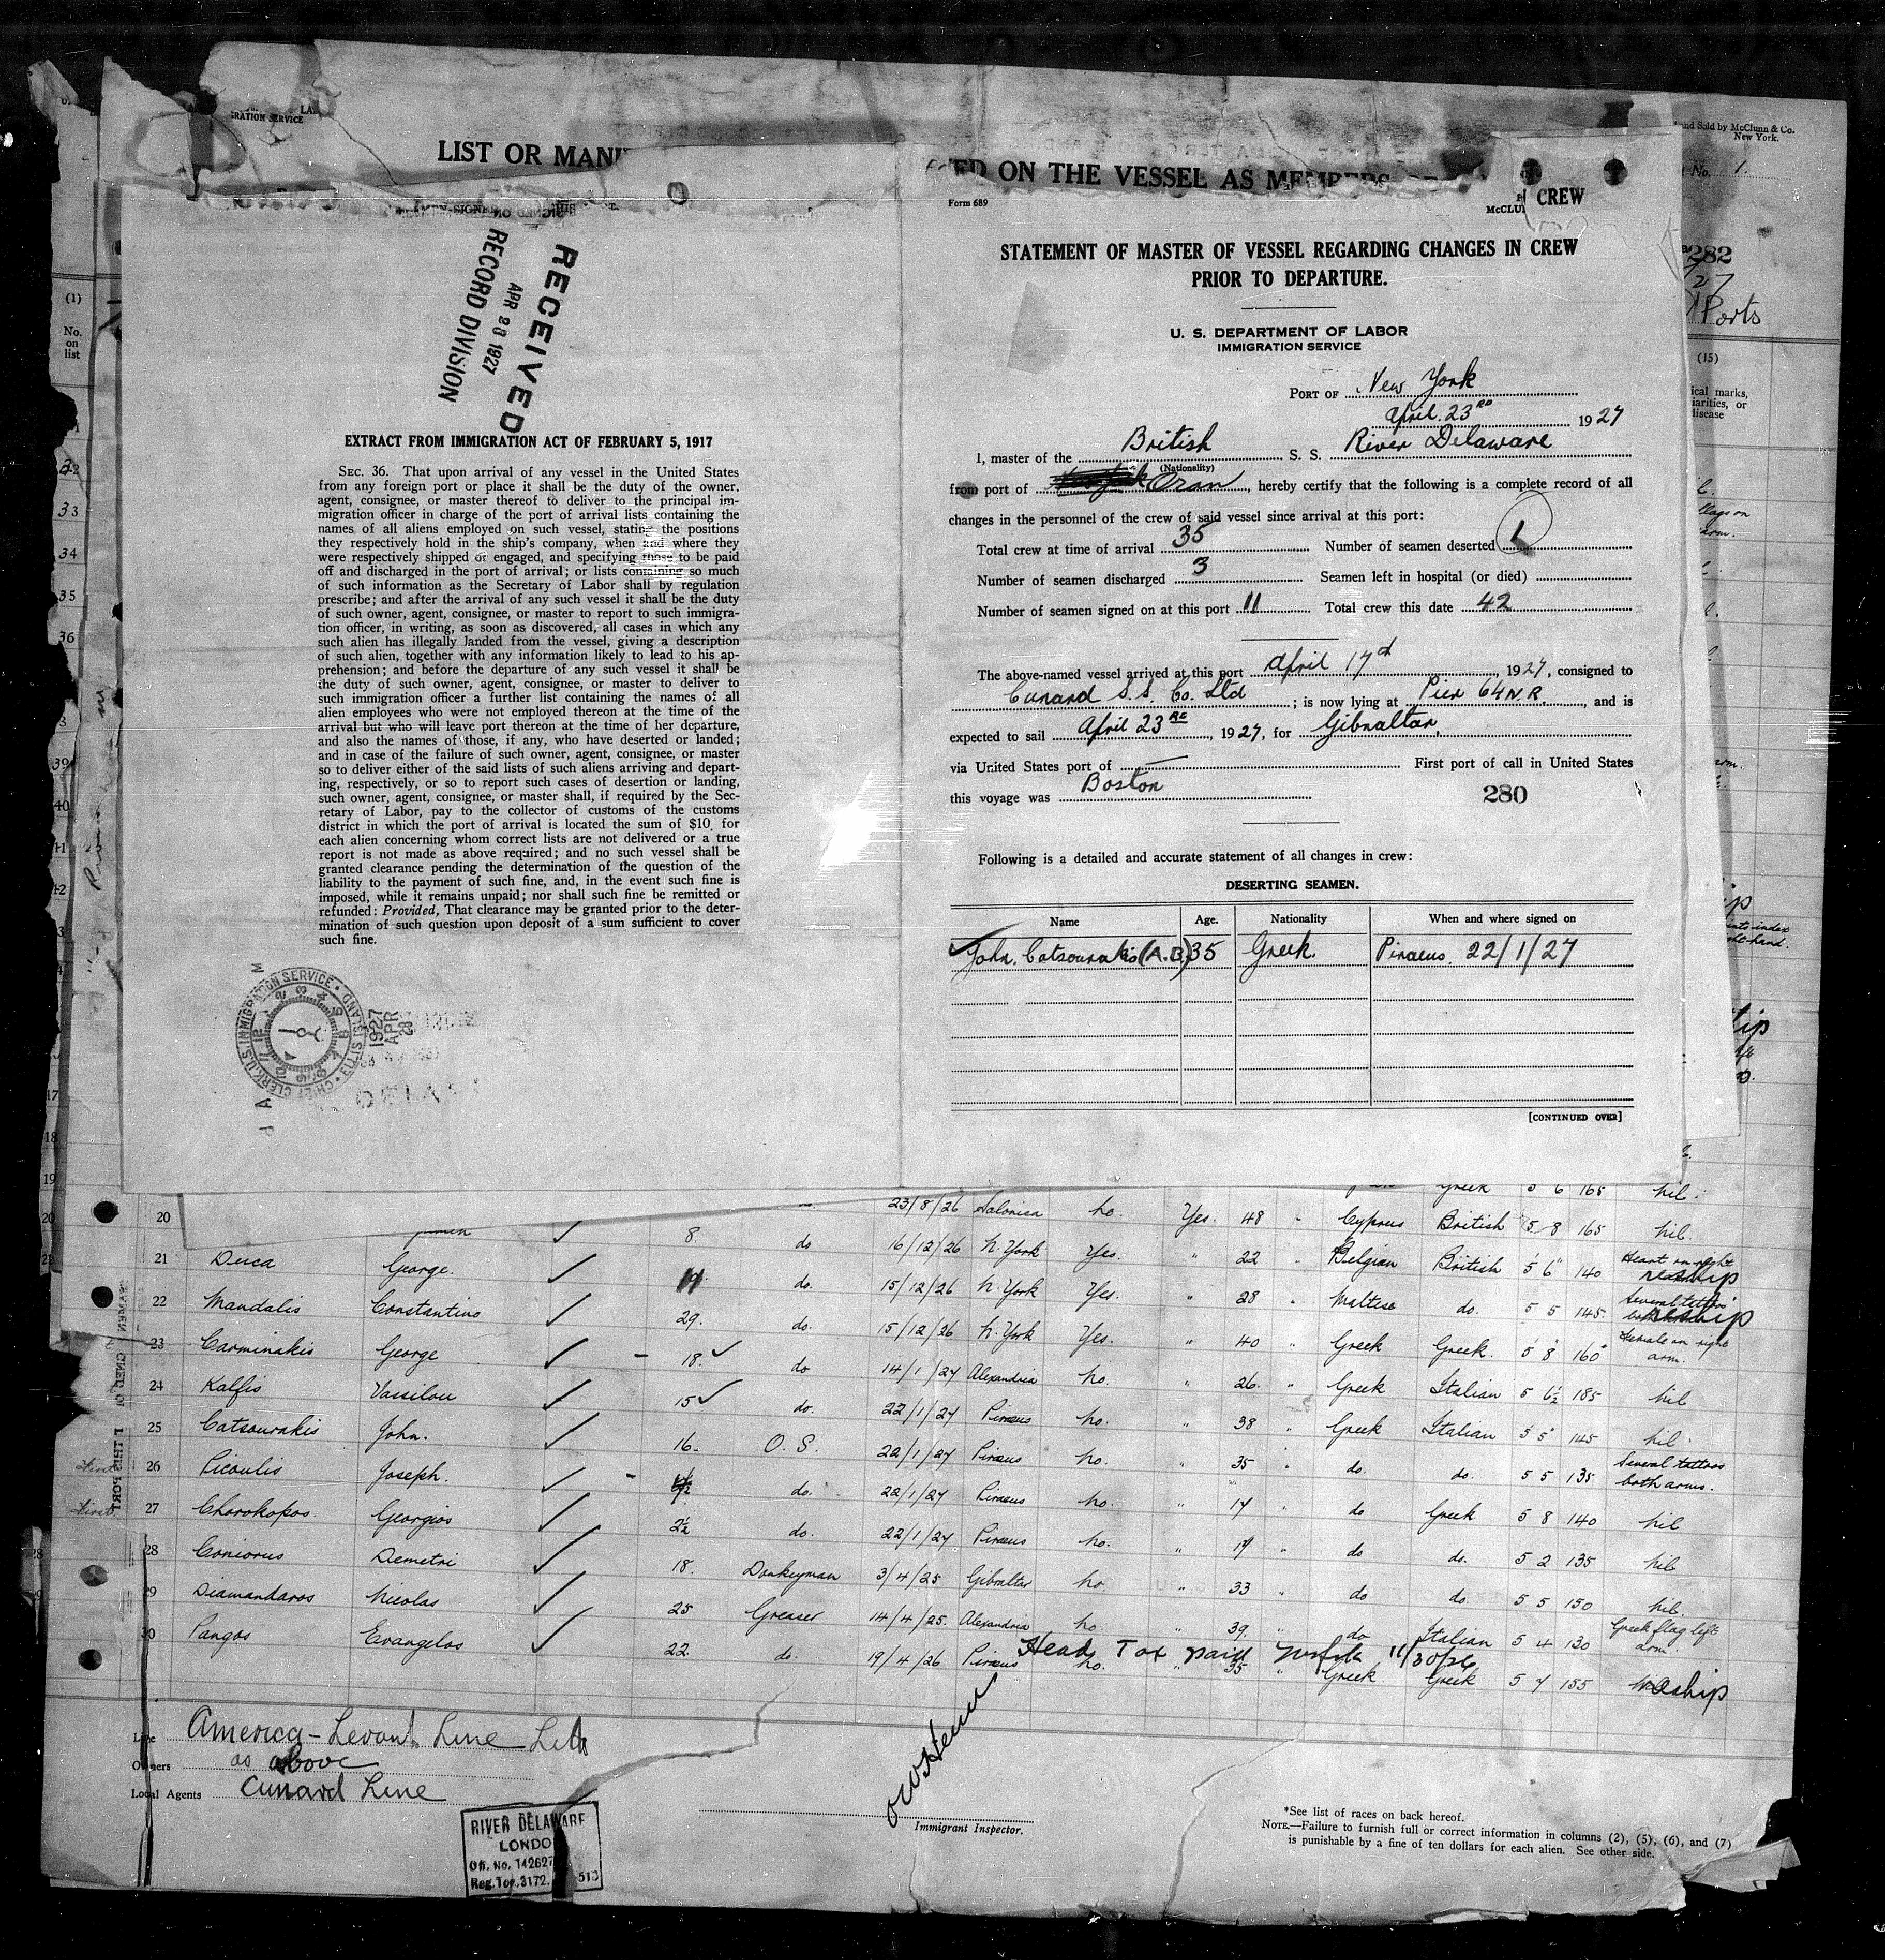 GRATION SERVICE
LIST OR MANI
ED ON THE VESSEL AS MEMBERS
CREW
and Sold by McClunn & Co.
New York.
No. 1.
282
27
Ports
(1)
No.
on
list
(15)
ical marks,
iarities, or
disease
RECEIVED
APR 28 1927
RECORD DIVISION
EXTRACT FROM IMMIGRATION ACT OF FEBRUARY 5, 1917
SEC. 36. That upon arrival of any vessel in the United States
from any foreign port or place it shall be the duty of the owner,
agent, consignee, or master thereof to deliver to the principal im-
migration officer in charge of the port of arrival lists containing the
names of all aliens employed on such vessel, stating the positions
they respectively hold in the ship's company, when and where they
were respectively shipped or engaged, and specifying those to be paid
off and discharged in the port of arrival; or lists containing so much
of such information as the Secretary of Labor shall by regulation
prescribe; and after the arrival of any such vessel it shall be the duty
of such owner, agent, consignee, or master to report to such immigra-
tion officer, in writing, as soon as discovered, all cases in which any
such alien has illegally landed from the vessel, giving a description
of such alien, together with any information likely to lead to his ap-
prehension; and before the departure of any such vessel it shall be
the duty of such owner, agent, consignee, or master to deliver to
such immigration officer a further list containing the names of all
alien employees who were not employed thereon at the time of the
arrival but who will leave port thereon at the time of her departure,
and also the names of those, if any, who have deserted or landed;
and in case of the failure of such owner, agent, consignee, or master
so to deliver either of the said lists of such aliens arriving and depart-
ing, respectively, or so to report such cases of desertion or landing,
such owner, agent, consignee, or master shall, if required by the Sec-
retary of Labor, pay to the collector of customs of the customs
district in which the port of arrival is located the sum of $10 for
each alien concerning whom correct lists are not delivered or a true
report is not made as above required; and no such vessel shall be
granted clearance pending the determination of the question of the
liability to the payment of such fine, and, in the event such fine is
imposed, while it remains unpaid; nor shall such fine be remitted or
refunded: Provided, That clearance may be granted prior to the deter-
mination of such question upon deposit of a sum sufficient to cover
such fine.
CHIEF CLERK, U.S. IMMIGRATION SERVICE · ELLIS ISLAND
1927 APR 28
Form 689
STATEMENT OF MASTER OF VESSEL REGARDING CHANGES IN CREW
PRIOR TO DEPARTURE.
U. S. DEPARTMENT OF LABOR
IMMIGRATION SERVICE
PORT OF New York
April 23RD 1927
I, master of the British S. S. River Delaware
(Nationality)
from port of Oran, hereby certify that the following is a complete record of all
changes in the personnel of the crew of said vessel since arrival at this port:
Total crew at time of arrival 35 Number of seamen deserted 1
Number of seamen discharged 3 Seamen left in hospital (or died)
Number of seamen signed on at this port 11 Total crew this date 42
The above-named vessel arrived at this port April 17th, 1927, consigned to
Cunard S.S. Co. Ltd; is now lying at Pier 64 N.R., and is
expected to sail April 23RD, 1927, for Gibraltar.
via United States port of — First port of call in United States
this voyage was Boston 280
Following is a detailed and accurate statement of all changes in crew:
DESERTING SEAMEN.
Name Age. Nationality When and where signed on
John. Catsourakis (A.B.) 35 Greek. Piraeus. 22/1/27
[CONTINUED OVER]
Greek 5 6 165 nil.
20 8 do 23/8/26 Salonica no. Yes. 48 " Cyprus British 5 8 165 nil.
21 Deuca George. 19. do. 16/12/26 N. York Yes. " 22 Belgian British 5 6 140 Heart on right
22 Mandalis Constantino 29. do. 15/12/26 N. York Yes. " 28 " Maltese do. 5 5 145 Several tattoos
23 Carminakis George 18. do 15/12/26 N. York Yes. " 40 " Greek Greek. 5 8 160 Female on right arm.
24 Kalfis Vassilou 15 do. 14/1/27 Alexandria no. " 26. " Greek Italian 5 6½ 185 nil
25 Catsourakis John. 16. O. S. 22/1/27 Piraeus no. " 38 " Greek Italian 5 5 145 nil.
26 Picoulis Joseph. do. 22/1/27 Piraeus no. " 35 " do. do. 5 5 135 Several tattoos both arms.
First 27 Chorokopos. Georgios 2½ do. 22/1/27 Piraeus no. " 17 do Greek 5 8 140 nil
28 Coniorus Demetri 18. Donkeyman 22/1/27 Piraeus no. " 19 " do do. 5 2 135 nil
29 Diamandaros Nicolas 25 Greaser 3/4/25 Gibraltar no. " 33 do do. 5 5 150 nil.
30 Pangos Evangelos 22. do. 14/4/25. Alexandria no. " 39. " do Italian 5 4 130 Greek flag left arm.
19/4/26 Piraeus no. " 35 " Greek Greek 5 7 155
Head Tax paid Norfolk 11/30/26
Line America-Levant Line Ltd
Owners as above
Local Agents Cunard Line
RIVER DELAWARE
LONDO
Off. No. 142627
Reg. Ton. 3172. 513
Immigrant Inspector.
*See list of races on back hereof.
NOTE.—Failure to furnish full or correct information in columns (2), (5), (6), and (7)
is punishable by a fine of ten dollars for each alien. See other side.